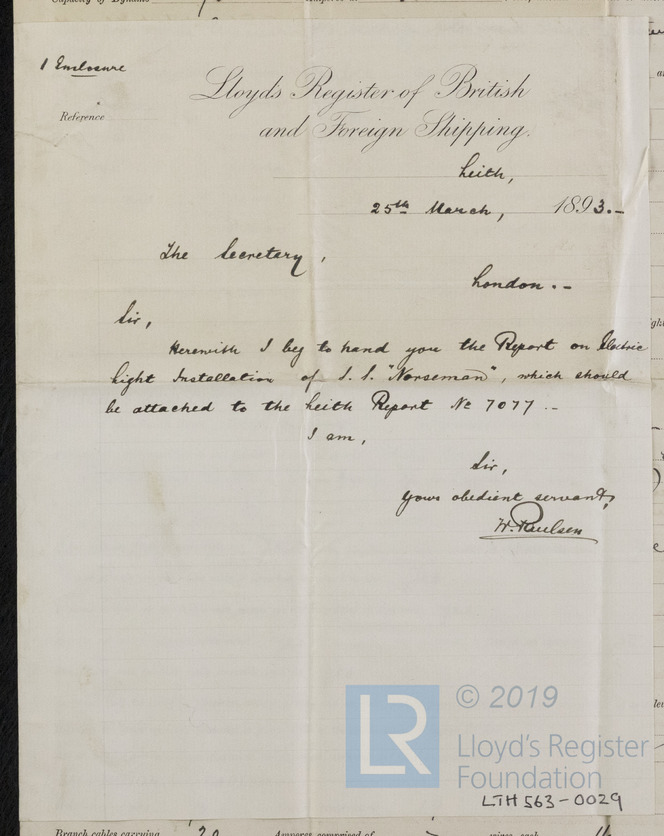 Capacity of Dynamo
1 Enclosure
Lloyds Register of British
Reference
and Foreign Shipping.
Leith,
25th March, 1893.-
The Secretary,
London.-
Sir,
Herewith I beg to hand you the Report on Electric
Light Installation of S.S. "Norseman", which should
be attached to the Leith Report No 7077.-
I am,
Sir,
Yours obedient servant,
W. Paulsen
© 2019
LR
Lloyd's Register
Foundation
LTH563-0029
Branch cables carrying 20 Amperes comprised of wires, each